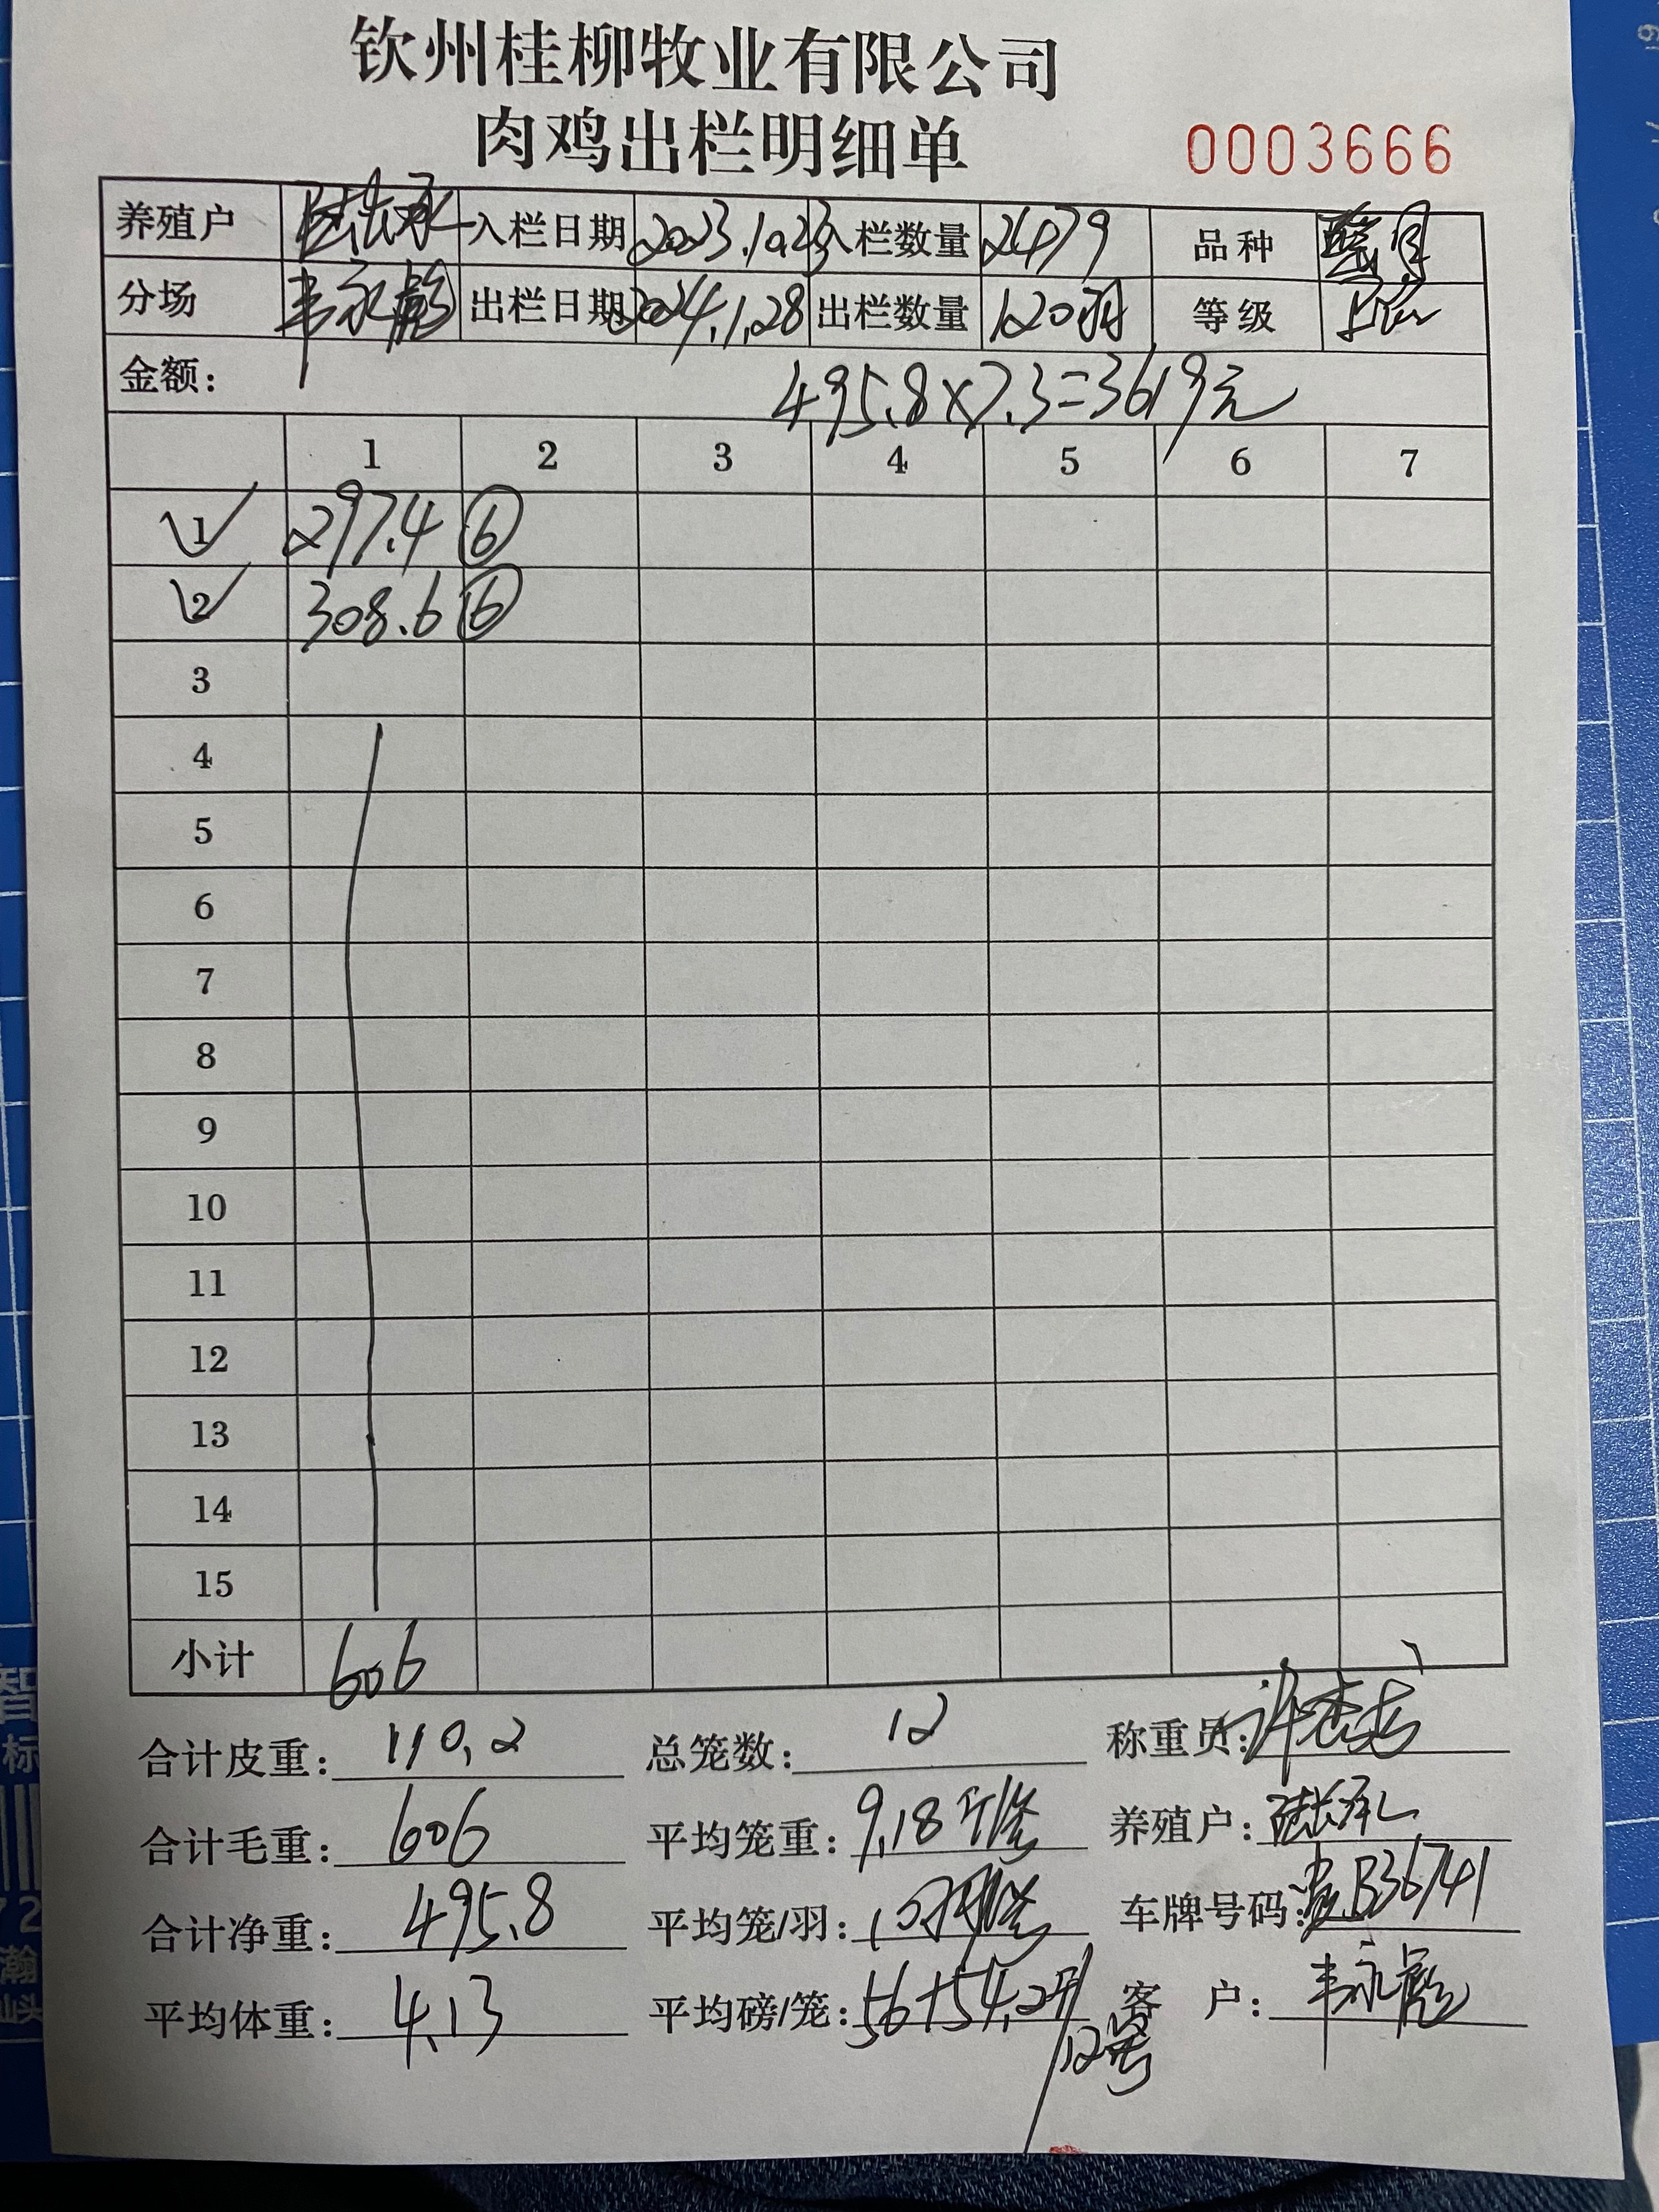 钦州桂柳牧业有限公司
肉鸡出栏明细单 0003666
养殖户 入栏日期 2023.10.23 入栏数量 2479 品种
分场 韦永彪 出栏日期 2024.1.28 出栏数量 120羽 等级
金额： 495.8×7.3=3619元
1 2 3 4 5 6 7
1 297.4 ⑥
2 308.6 ⑥
3
4
5
6
7
8
9
10
11
12
13
14
15
小计 606
合计皮重： 110.2 总笼数： 12 称重员：
合计毛重： 606 平均笼重： 9.18斤/笼 养殖户：
合计净重： 495.8 平均笼/羽： 10羽/笼 车牌号码： B36741
平均体重： 4.13 平均磅/笼： 56+54.2斤/12笼 客 户： 韦永彪